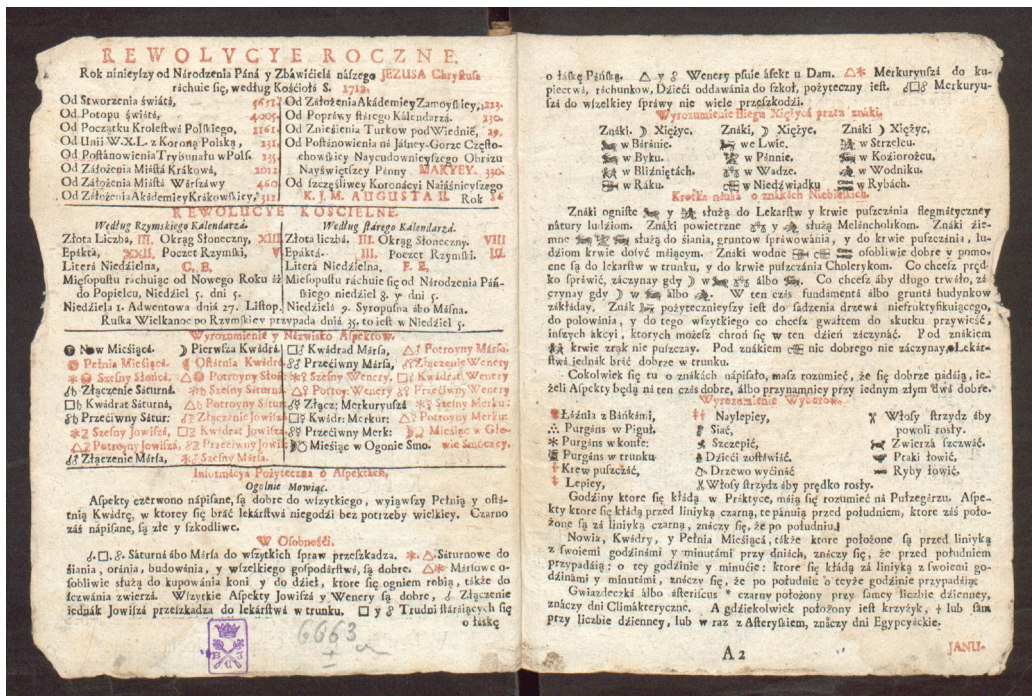 REWOLVCYE ROCZNE.
Rok ninieyszy od Národzenia Páná y Zbáwićielá nászego JEZUSA Chrystusa
ráchuie się, według Kośćiołá S. 1712.
Od Stworzenia świátá, 5651.
Od Potopu świátá, 4005.
Od Początku Krolestwá Polskiego, 1161.
Od Unii W.X.L. z Koroną Polską, 231.
Od Postánowienia Trybunału w Pols. 135.
Od Záłożenia Miástá Krákowá, 1012
Od Záłożenia Miástá Wárszáwy 460
Od Záłożenia Akádemiey Krákowskiey, 312
Od Záłożenia Akádemiey Zamoyskiey, 223.
Od Popráwy stárego Kálendarzá. 130.
Od Znieśienia Turkow pod Wiedniẽ, 29.
Od Postánowienia ná Jásney-Gorze Często-
chowskiey Naycudownieyszego Obrázu
Nayświętszey Pánny MARYEY. 330.
Od szczęśliwey Koronácyi Naiáśnieyszego
K. J. M. AUGUSTA II. Rok 16
REWOLUCYE KOSCIELNE.
Według Rzymskiego Kálendarzá.
Złota Liczbá, III. Okrąg Słoneczny, XIII
Epáktá, XXII, Poczet Rzymski, V
Literá Niedźielna, C. B.
Mięsopustu ráchuiąc od Nowego Roku áż
do Popielcu, Niedźiel 5. dni 5.
Niedźiela 1. Adwentowa dniá 27. Listop.
Według stárego Kálendarzá.
Złota liczbá. III. Okrąg Słoneczny. VIII
Epáktá. III. Poczet Rzymski. III.
Literá Niedźielna F. E,
Mięsopustu ráchuie się od Národzenia Páń-
skiego niedźiel 8. y dni 5.
Niedźielá 9. Syropusna ábo Másna.
Ruska Wielkanoc po Rzymskiey przypada dniá 35. to iest w Niedźiel 5.
Wyrozumienie y Názwisko Aspektow.
Now Mieśiącá. ☽ Pierwsza Kwádrá.
Pełnia Mieśiącá. ☾ Ostátnia Kwádrá
Szesny Słońcá, △ Potroyny Słoń.
☌♄ Złączenie Sáturná. ⚹♄ Szesny Sáturná
□♄ Kwádrat Sáturná, △♄ Potroyny Sátur
☍♄ Przećiwny Sátur. ☌♃ Złączenie Jowiszá
⚹♃ Szesny Jowiszá, □♃ Kwádrat Jowiszá
△♃ Potroyny Jowiszá, ☍♃ Przećiwny Jowi:
☌♂ Złączenie Mársa, ⚹♂ Szesny Mársa.
□♂ Kwádrad Mársa, △♂ Potroyny Mársa.
☍♂ Przećiwny Mársa, ☌♀ Złączenie Wenery
⚹♀ Szesny Wenery. □♀ Kwádrat Wenery
△♀ Potroy: Wenery ☍♀ Przećiwny Wenery
☌☿ Złącz: Merkuryuszá ⚹☿ Szesny Merku:
□☿ Kwádr: Merkur: △☿ Potroyny Merku:
☍☿ Przećiwny Merk: Mieśiąc w Gło-
Mieśiąc w Ogonie Smo. wie Smoczey.
Informácya Pożyteczna o Aspektách,
Ogolnie Mowiąc.
Aspekty czerwono nápisane, są dobre do wszytkiego, wyiąwszy Pełnią y ostá-
tnią Kwádrę, w ktorey się bráć lekárstwá niegodźi bez potrzeby wielkiey. Czarno
záś nápisane, są złe y szkodliwe.
W Osobnośći.
☌. □. ☍. Sáturná ábo Mársa do wszytkich spraw przeszkadza. ⚹. △. Sáturnowe do
śiania, oránia, budowánia, y wszelkiego gospodárstwá, są dobre. △⚹ Mársowe o-
sobliwie służą do kupowánia koni y do dźieł, ktore się ogniem robią, tákże do
szczwánia zwierzá. Wszytkie Aspekty Jowiszá y Wenery są dobre, ☌ Złączenie
iednák Jowiszá przeszkadza do lekárstwá w trunku. □ y ☍ Trudni stáráiących się
o łáskę
6663
I
o łáskę Páńską. △ y ☍ Wenery psuie áfekt u Dam. △⚹ Merkuryuszá do ku-
piectwá, ráchunkow, Dźieći oddawánia do szkoł, pożyteczny iest. ☌□☍ Merkuryu-
szá do wszelkiey spráwy nie wiele przeszkodźi.
Wyrozumienie Biegu Xiężycá przez znáki.
Znáki. ☽ Xiężyc. Znáki, ☽ Xiężyc. Znáki ☽ Xiężyc,
w Báránie. we Lwie. w Strzelcu.
w Byku. w Pánnie. w Koźiorożcu,
w Bliźniętách. w Wadze. w Wodniku.
w Ráku. w Niedźwiadku w Rybách.
Krotka náuká o znákách Niebieskich.
Znáki ogniste y służą do Lekarstw y krwie puszczánia flegmátyczney
nátury ludźiom. Znáki powietrzne y służą Meláncholikom. Znáki źie-
mne służą do śiania, gruntow spráwowánia, y do krwie puszczánia, lu-
dźiom krwie dosyć máiącym. Znáki wodne osobliwie dobre y pomo-
cne są do lekarstw w trunku, y do krwie puszczánia Cholerykom. Co chcesz prẽd-
ko spráwić, záczynay gdy ☽ w álbo. Co chcesz áby długo trwáło, zá
czynay gdy ☽ w álbo. W ten czás fundamentá álbo gruntá budynkow
zákłáday. Znák pożytecznieyszy iest do sádzenia drzewá niefruktysikuiącego,
do polowánia, y do tego wszytkiego co chcesz gwałtem do skutku przywieść,
inszych akcyi, ktorych możesz chroń się w ten dźień záczynáć. Pod znákiem
krwie żrąk nie puszczay. Pod znákiem nic dobrego nie záczynay. Lekár-
stwá iednák bráć dobrze w trunku.
Cokolwiek się tu o znákách nápisáło, masz rozumieć, że się dobrze nádáią, ie-
żeli Aspekty będą ná ten czás dobre, álbo przynamniey przy iednym złym dwá dobre.
Wyrozumienie Wyborow.
Łáźnia z Báńkámi, Naylepiey, Włosy strzydz áby
Purgáns w Piguł. Siać, powoli rosły.
Purgáns w konfe: Szczepić, Zwierzá szczwáć.
Purgáns w trunku Dźieći zostáwiać. Ptaki łowić,
Krew puszczáć, Drzewo wyćináć Ryby łowić.
Lepiey, Włosy strzydz áby prędko rosły.
Godźiny ktore się kłádą w Práktyce, máią się rozumieć ná Pułzegárzu. Aspe-
kty ktore się kłádą przed liniyką czarną, te pánuią przed południem, ktore záś poło-
żone są zá liniyką czarną, znáczy się, że po południu.
Nowia, Kwádry, y Pełnia Mieśiącá, tákże ktore położone są przed liniyką
z swoiemi godźinámi y minutámi przy dniách, znáczy się, że przed południem
przypadáią: o tey godźinie y minućie: ktore się kłádą zá liniyką z swoiemi go-
dźinámi y minutámi, znáczy się, że po południe o teyże godźinie przypadáią:
Gwiazdeczká álbo ásteriscus * czarny położony przy samey liczbie dźienney,
znáczy dni Climákteryczne. A gdźiekolwiek położony iest krzyżyk, † lub sám
przy liczbie dźienney, lub w raz z Asteryskiem, znáczy dni Egypcyáckie.
A 2
JANU-